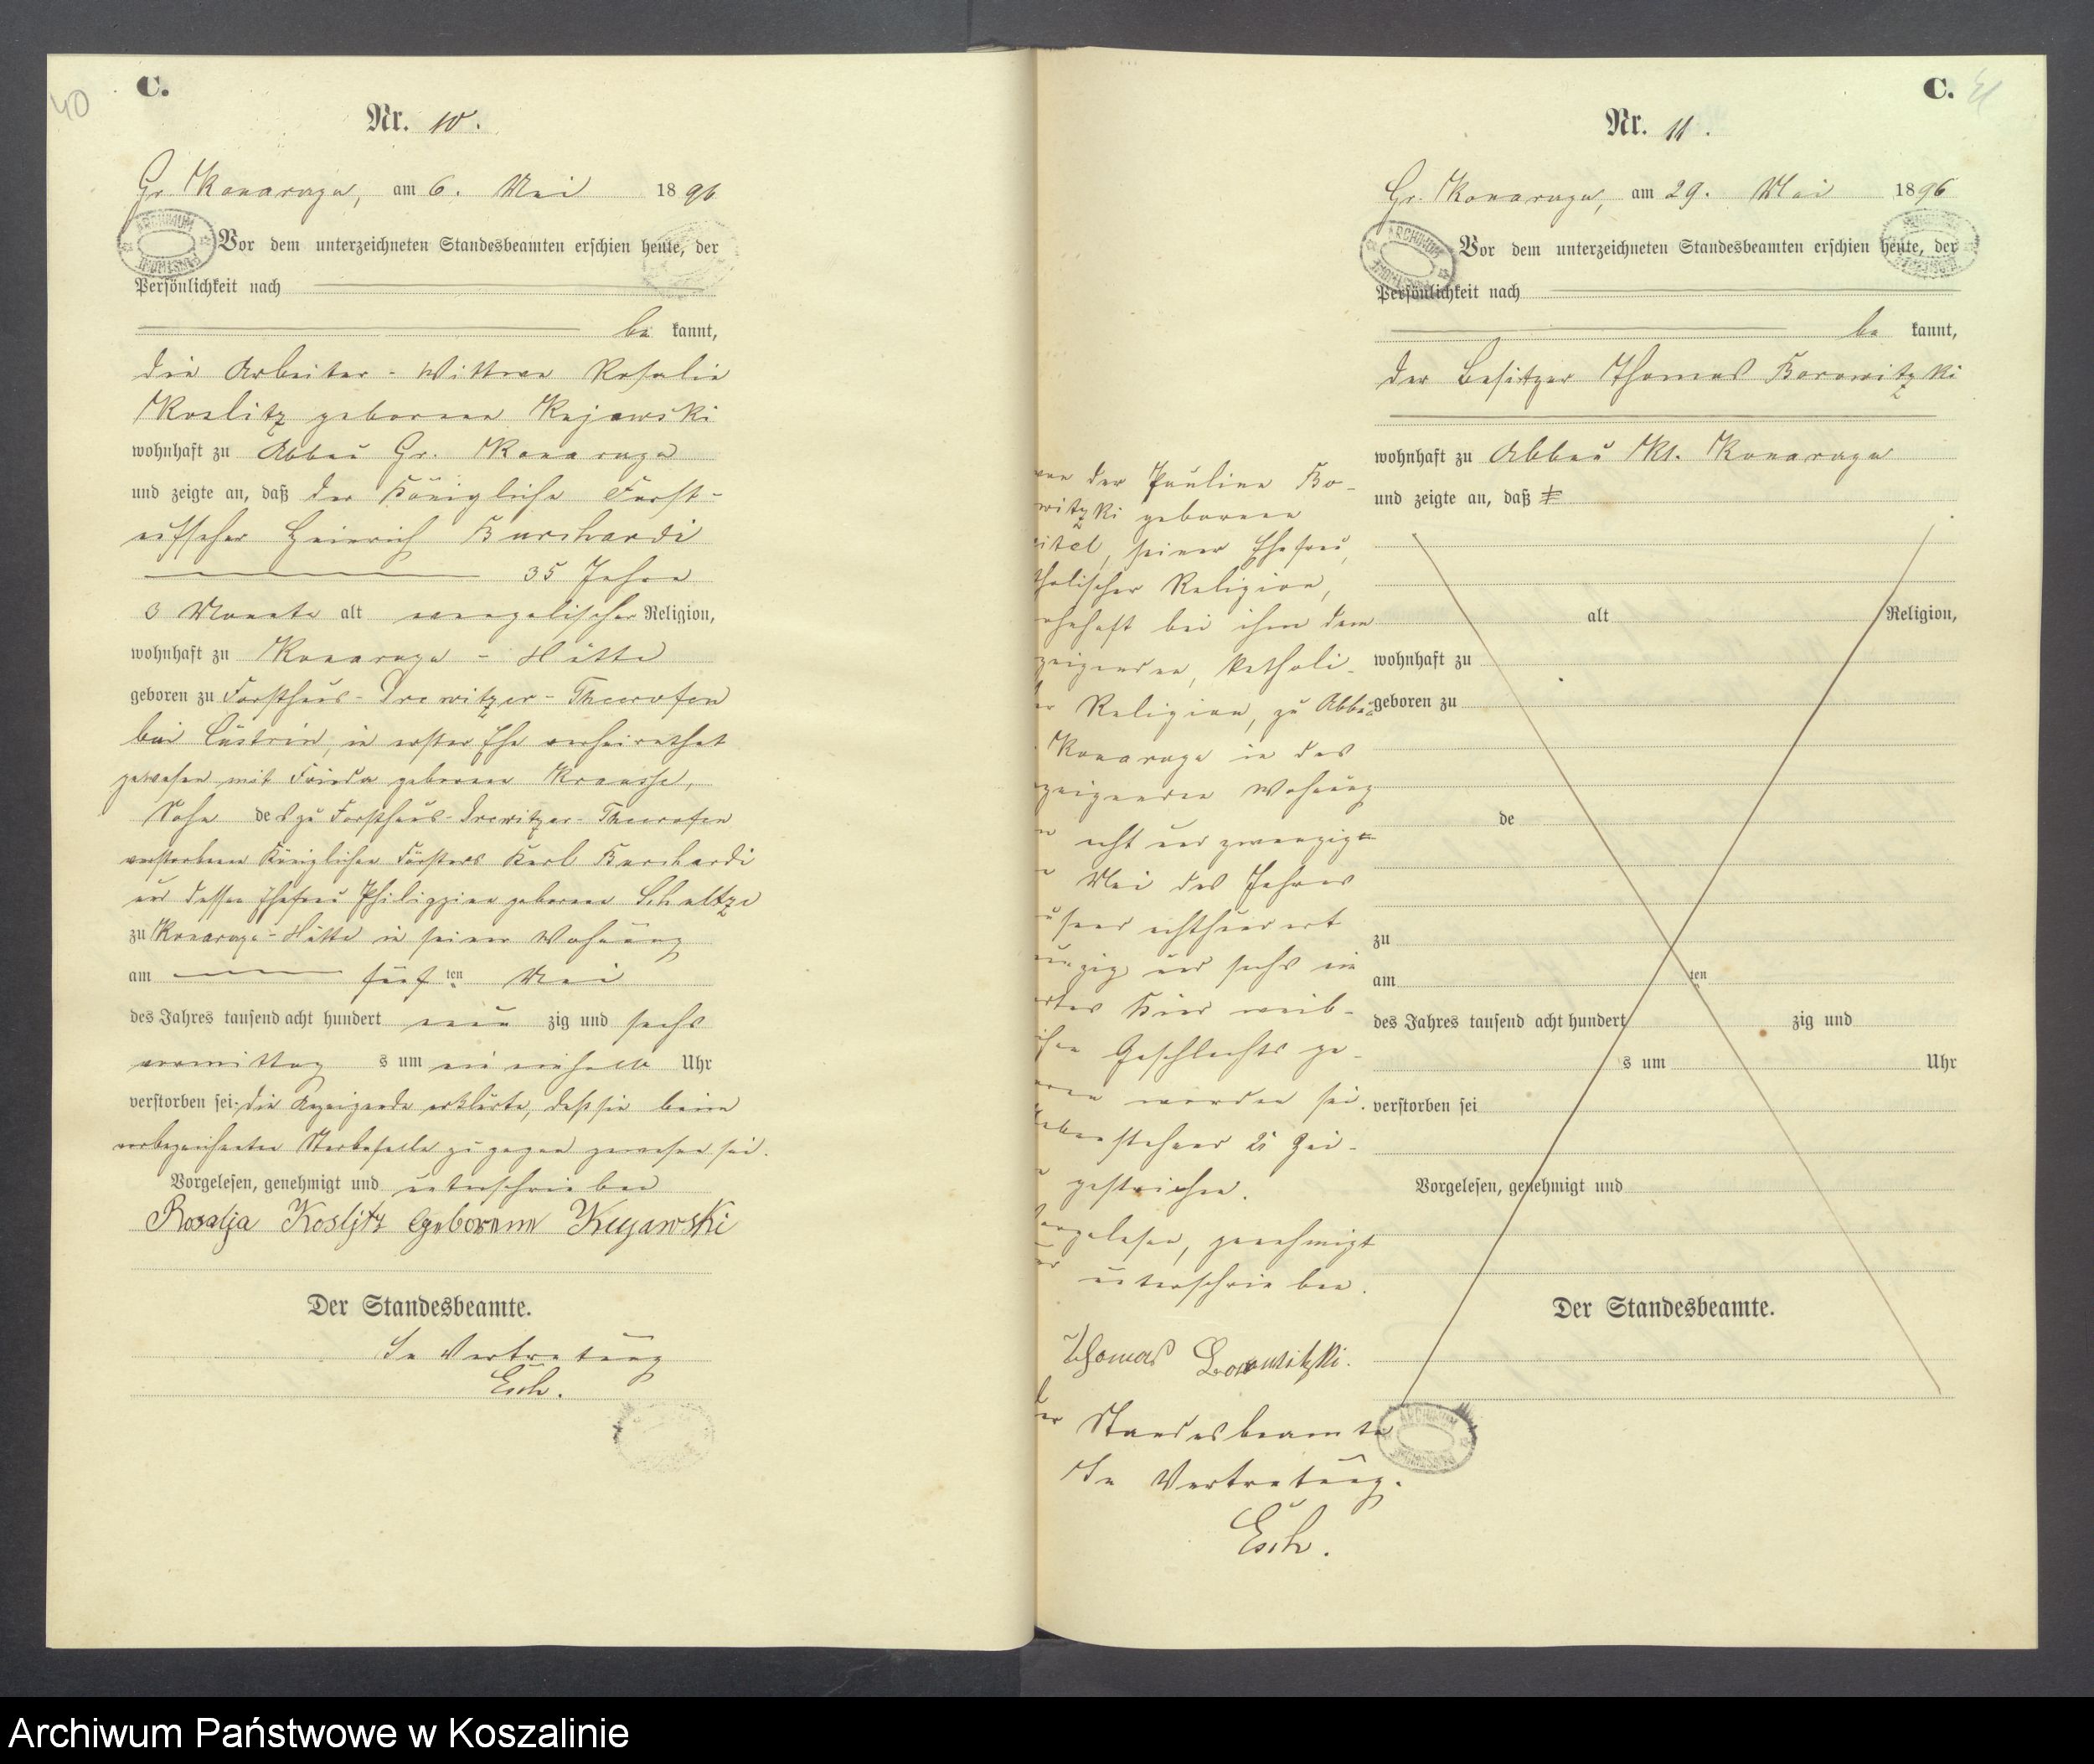 40
C.
Nr. 10.
Gr Konarczyn, am 6. Mai 1896
Vor dem unterzeichneten Standesbeamten erschien heute, der
Persönlichkeit nach
be kannt,
die Arbeiter-Wittwe Rosalie
Koslitz geborene Kujawski
wohnhaft zu Abbau Gr. Konarczyn
und zeigte an, daß der Königliche Forst-
aufseher Heinrich Burchardi
35 Jahre
3 Monate alt evangelischer Religion,
wohnhaft zu - Hütte
geboren zu Forsthaus-Drewitzer-Theerofen
bei Cüstrin, in erster Ehe verheirathet
gewesen mit Frieda geborene Krause,
Sohn des zu Forsthaus-Drewitzer-Theerofen
verstorbenen Königlichen Försters Karl Burchardi
und dessen Ehefrau Philippine geborene Schultze
zu - Hütte in seiner Wohnung
am fünften Mai
des Jahres tausend acht hundert neun zig und sechs
vormittags um ein einhalb Uhr
verstorben sei. die Anzeigende erklärte, daß sie beim
vorbezeichneten Sterbefalle zugegen gewesen sei.
Vorgelesen, genehmigt und unterschrieben
Rosalja Koslitz geborenn Kujawski
Der Standesbeamte.
In Vertretung
Esch.
C. 41
Nr. 11.
Gr. Konarczyn, am 29. Mai 1896
Vor dem unterzeichneten Standesbeamten erschien heute, der
Persönlichkeit nach
be kannt,
der Besitzer Thomas Borowitzki
wohnhaft zu Abbau Kl. Konarczyn
und zeigte an, daß
alt Religion,
wohnhaft zu
geboren zu
de
zu
am ten
des Jahres tausend acht hundert zig und
s um Uhr
verstorben sei
Vorgelesen, genehmigt und
Der Standesbeamte.
von der Pauline Bo-
witzki geborene
seiner Ehefrau,
tholischer Religion,
ohnhaft bei ihm dem
zeigenden, katholi-
er Religion, zu Abbau
Konarczyn in des
zeigenden Wohnung
acht und zwanzigten
Mai des Jahres
usend achthundert
unzig und sechs ein
todtes Kind weib-
ichen Geschlechts ge-
oren worden sei.
ebenstehend 25 Zei-
gestrichen.
Vorgelesen, genehmigt
und unterschrieben.
Thomas Borowitzki.
der Standesbeamte
In Vertretung.
Esch.
Archiwum Państwowe w Koszalinie